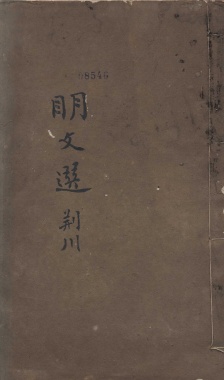 08546
明文選 荆川